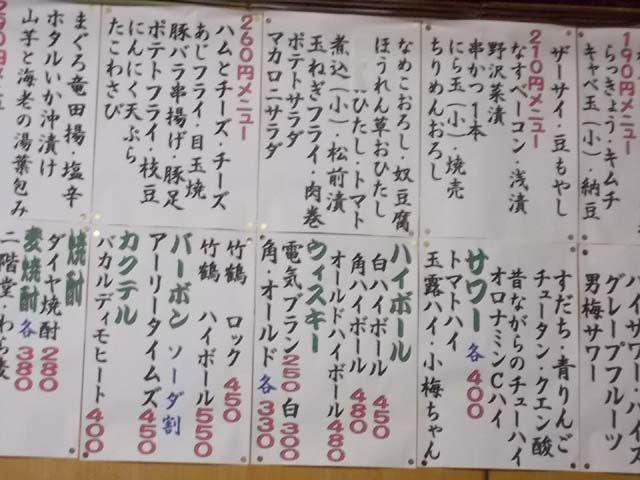 190円メニュー
らっきょう・キムチ
キャベ玉(小)・納豆
ザーサイ・豆もやし
210円メニュー
なすベーコン・浅漬
野沢菜漬
串かつ1本
にら玉(小)・焼売
ちりめんおろし
なめこおろし・奴豆腐
ほうれん草おひたし
ひたし・トマト
煮込(小)・松前漬
玉ねぎフライ・肉巻
ポテトサラダ
マカロニサラダ
260円メニュー
ハムとチーズ・チーズ
あじフライ・目玉焼
豚バラ串揚げ・豚足
ポテトフライ・枝豆
にんにく天ぷら
たこわさび
まぐろ竜田揚・塩辛
ホタルいか沖漬け
山芋と海老の湯葉包み
290円メニュー
ハイサワー・ハイズ
グレープフルーツ
男梅サワー
すだち・青りんご
チュータン・クエン酸
昔ながらのチューハイ
オロナミンCハイ
サワー 各400
トマトハイ
玉露ハイ・小梅ちゃん
ハイボール
白ハイボール 450
角ハイボール 480
オールドハイボール 480
ウィスキー
電気ブラン250 白300
角・オールド 各330
竹鶴 ロック 450
竹鶴 ハイボール 550
バーボン ソーダ割
アーリータイムズ 450
カクテル
バカルディモヒート 400
焼酎
ダイヤ焼酎 280
麦焼酎 各380
二階堂